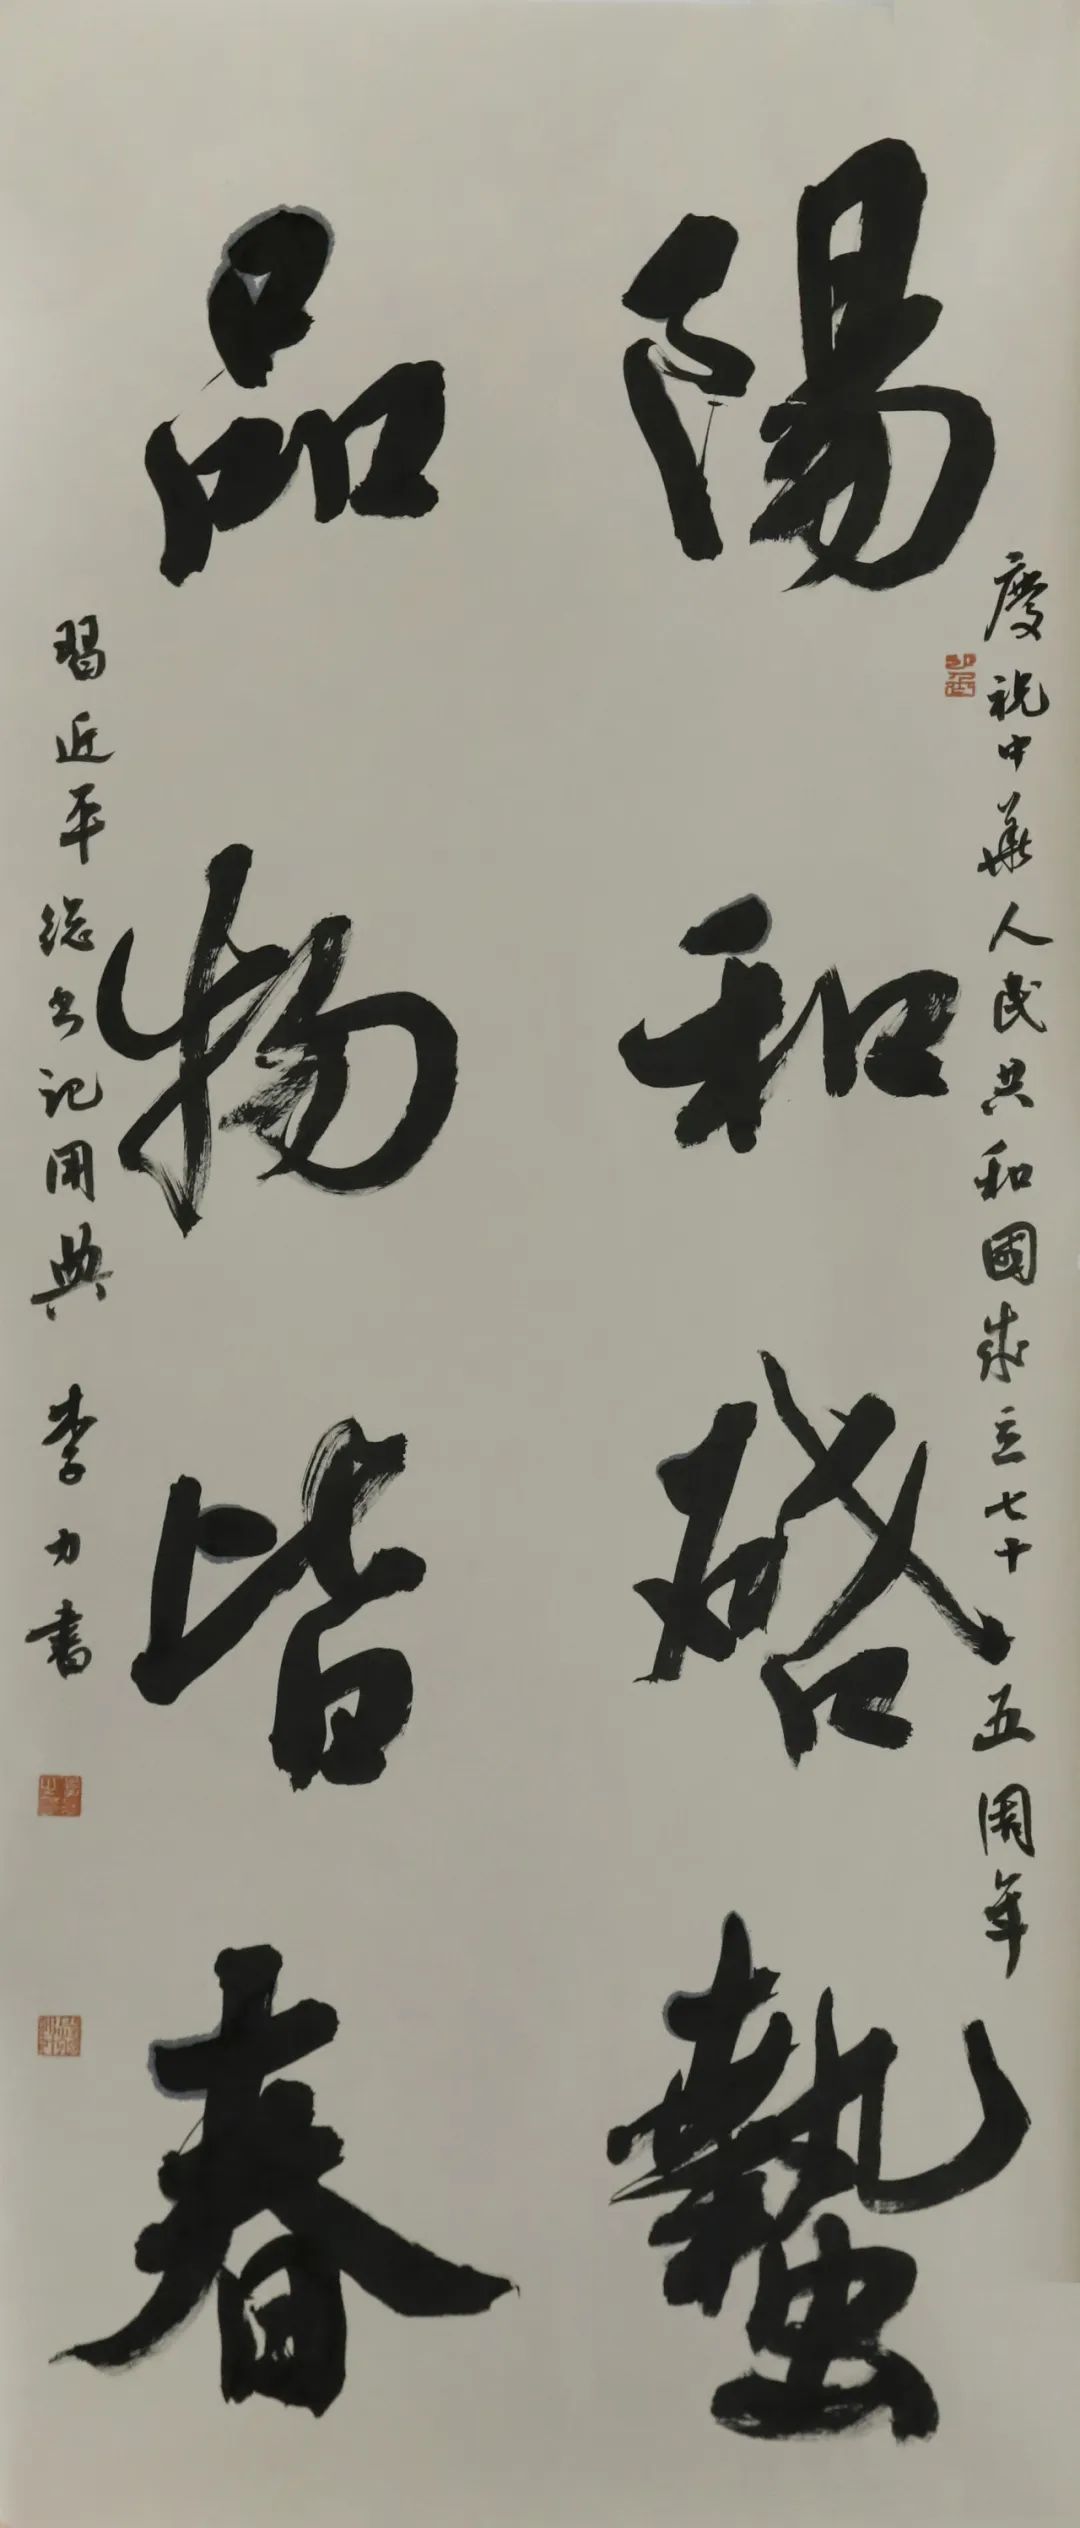 慶祝中華人民共和國成立七十五周年
陽和啓蟄
品物皆春
習近平總书记用典 李力書